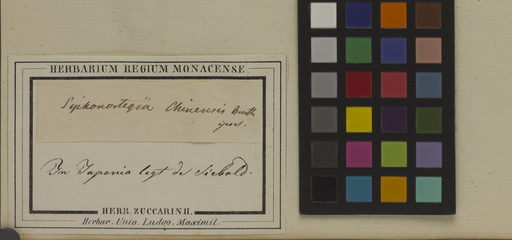 HERBARIUM REGIUM MONACENSE.
Siphonostegia Chinensis Benth
ipse.
In Japonia legt de Siebold.
HERB. ZUCCARINII.
Herbar. Univ. Ludov. Maximil.